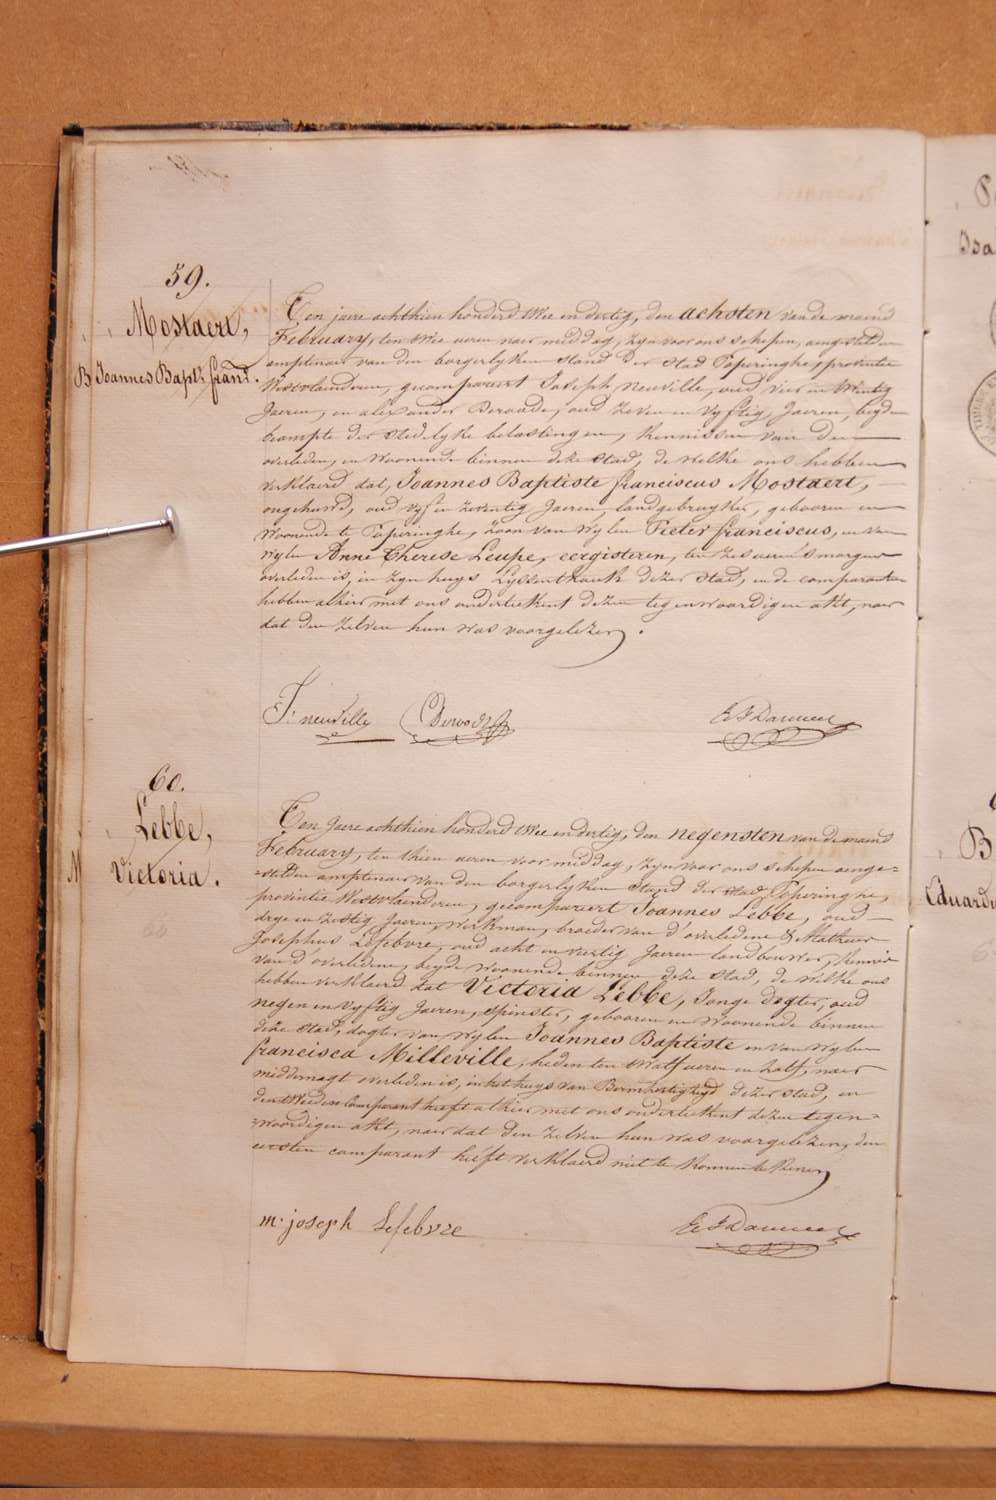 59.
Mostaert,
B Joannes Bapt. franc.
Ten jaere achthien honderd twee en dertig, den achsten van de maend
February, ten twee ueren naer middag, zyn voor ons schepen, aengestelden
amptenaer van den borgerlyken stand der stad Poperinghe, provintie
Westvlaenderen, gecompareert Joseph neuville, oud vier en
Jaeren, en alexander Deroode, oud zeven en vyftig Jaeren, beyde
beampte der stedelyke belastingen, kennissen van den
overleden, en woonende binnen deze stad, de welke ons hebben
verklaerd dat, Joannes Baptiste franciscus Mostaert,
ongehuwd, oud vyf en zeventig Jaeren, landgebruyker, gebooren en
woonende te Poperinghe, zoon van wylen Pieter franciscus, en van
wylen Anne Therese Leupe, eergisteren, ten zes ueren 'smorgens
overleden is, in zyn huys dezer stad, en de comparanten
hebben alhier met ons onderteekent dezen tegenwoordigen akt, naer
dat den zelven hun was voorgelezen.
J. neuville Deroode
60.
Lebbe,
M Victoria.
Ten Jaere achthien honderd twee en dertig, den negensten van de maend
February, ten thien ueren voor middag, zyn voor ons schepen aenge-
=stelden amptenaer van den borgerlyken stand der stad Poperinghe,
provintie Westvlaenderen, gecompareert Joannes Lebbe, oud
drye en zestig Jaeren, werkman, broeder van d'overledene & Matheus
Josephus Lefebvre, oud acht en veertig Jaeren landbouwer, kennis
van d'overledene, beyde woonende binnen deze stad, de welke ons
hebben verklaerd dat Victoria Lebbe, Jonge dogter, oud
negen en vyftig Jaeren, spinster, gebooren en woonende binnen
deze stad, dogter van wylen Joannes Baptiste en van wylen
francisca Milleville, heden ten twalf ueren en half, naer
middernagt overleden is, in het huys van Bermhertigheyd dezer stad, en
den tweeden comparant heeft alhier met ons onderteekent dezen tegen-
=woordigen akt, naer dat den zelven hun was voorgelezen, den
eersten comparant heeft verklaerd niet te konnen teekenen
m. joseph Lefebvre